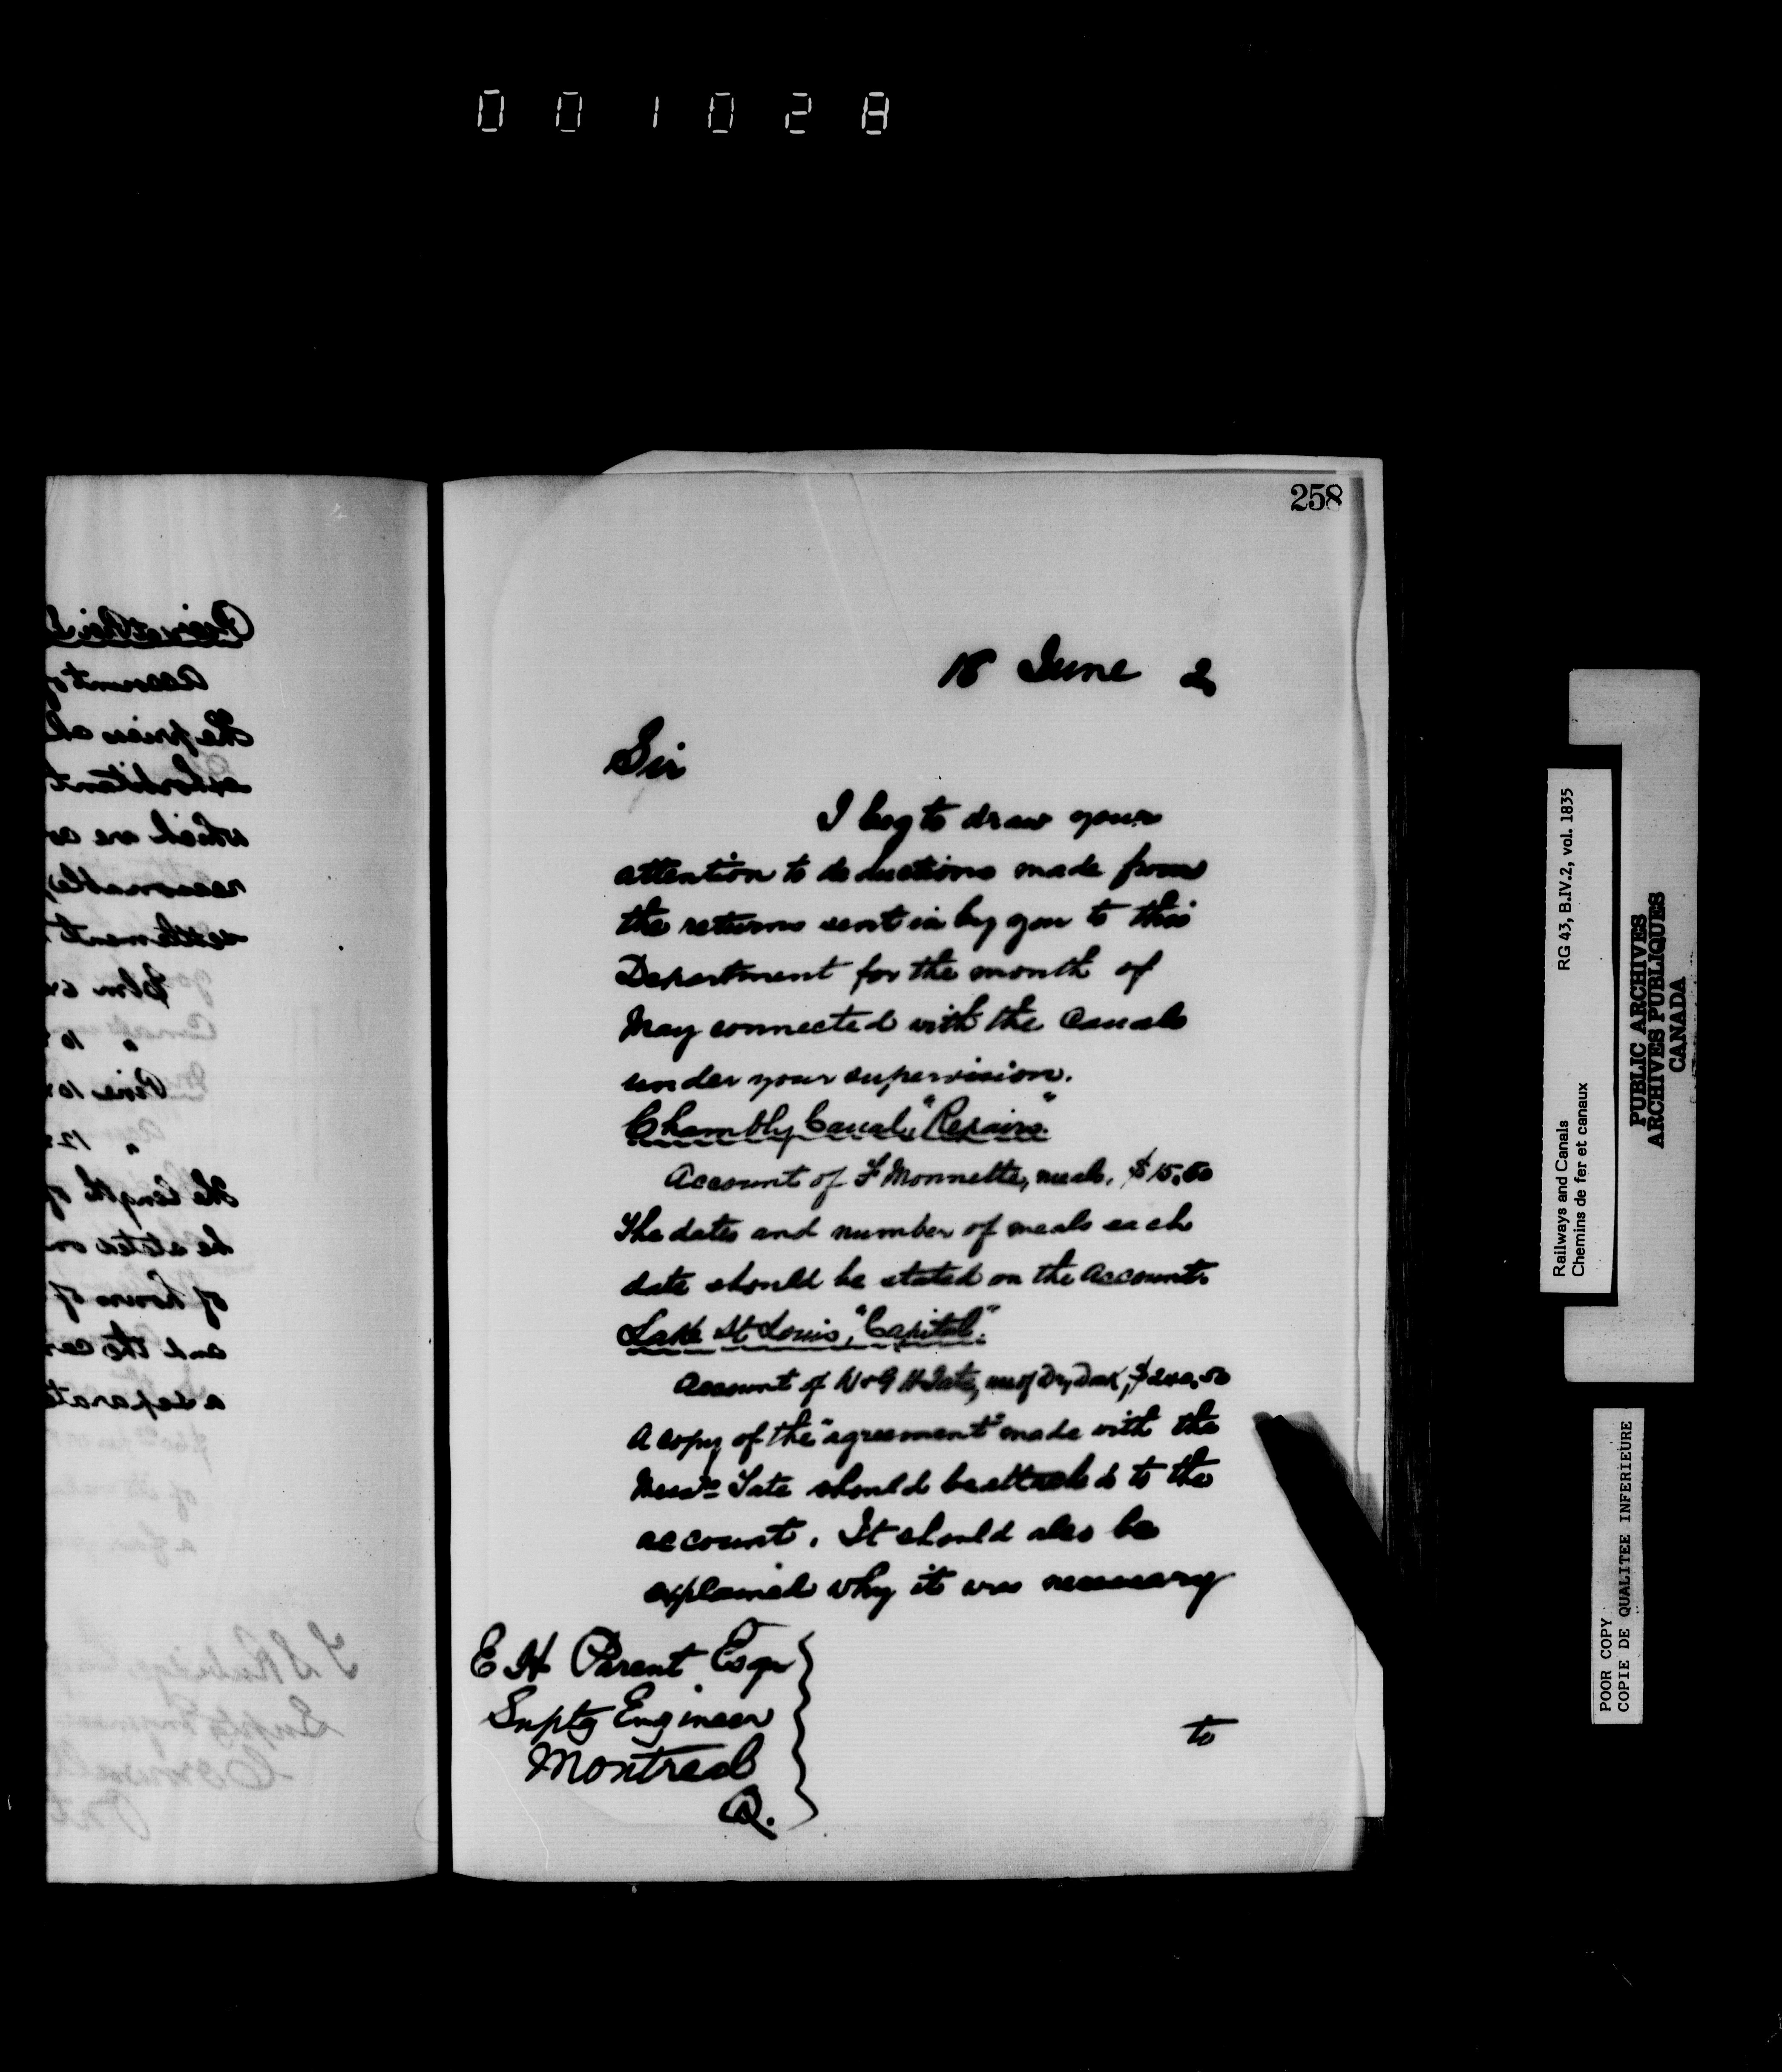 001028
258
18 June 2
Sir
I beg to draw your
attention to deductions made from
the returns sent in by you to this
Department for the month of
May connected with the Canals
under your supervision.
Chambly Canal, "Repairs"
Account of F Monnette, meals, $15,50
The dates and number of meals each
date should be stated on the Account.
Lake St Louis, "Capital".
Account of W & G H Tate, use of Dry Dock, $240,50
A copy of the "agreement" made with the
Messrs Tate should be attached to the
account. It should also be
explained why it was necessary
E H Parent Esqr
Suptg Engineer
Montreal
Q.
to
Account of
which are
reasonable
settlement
Elm
Pine
the length of
be stated on
of hours of
and the
a separate
Suptg Engineer
Cornwall
Ont
Railways and Canals RG 43, B.IV.2, vol. 1835
Chemins de fer et canaux
PUBLIC ARCHIVES
ARCHIVES PUBLIQUES
CANADA
POOR COPY
COPIE DE QUALITEE INFERIEURE